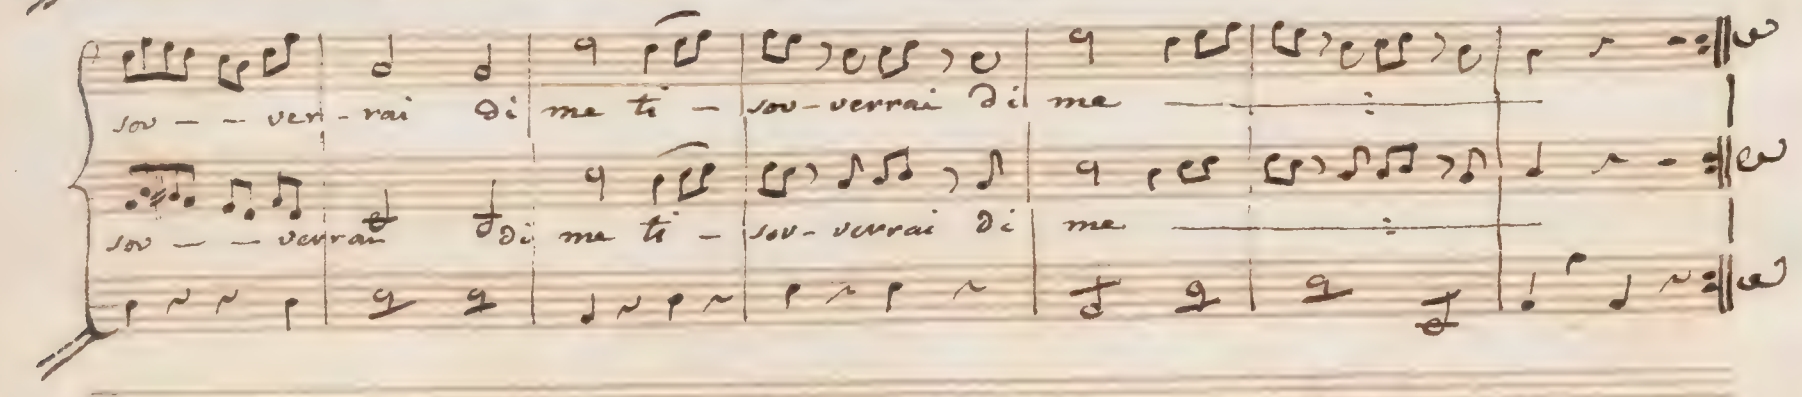 sov - - ver - rai di me ti - sov - verrai di me
sov - - verrai di me ti - sov - verrai di me